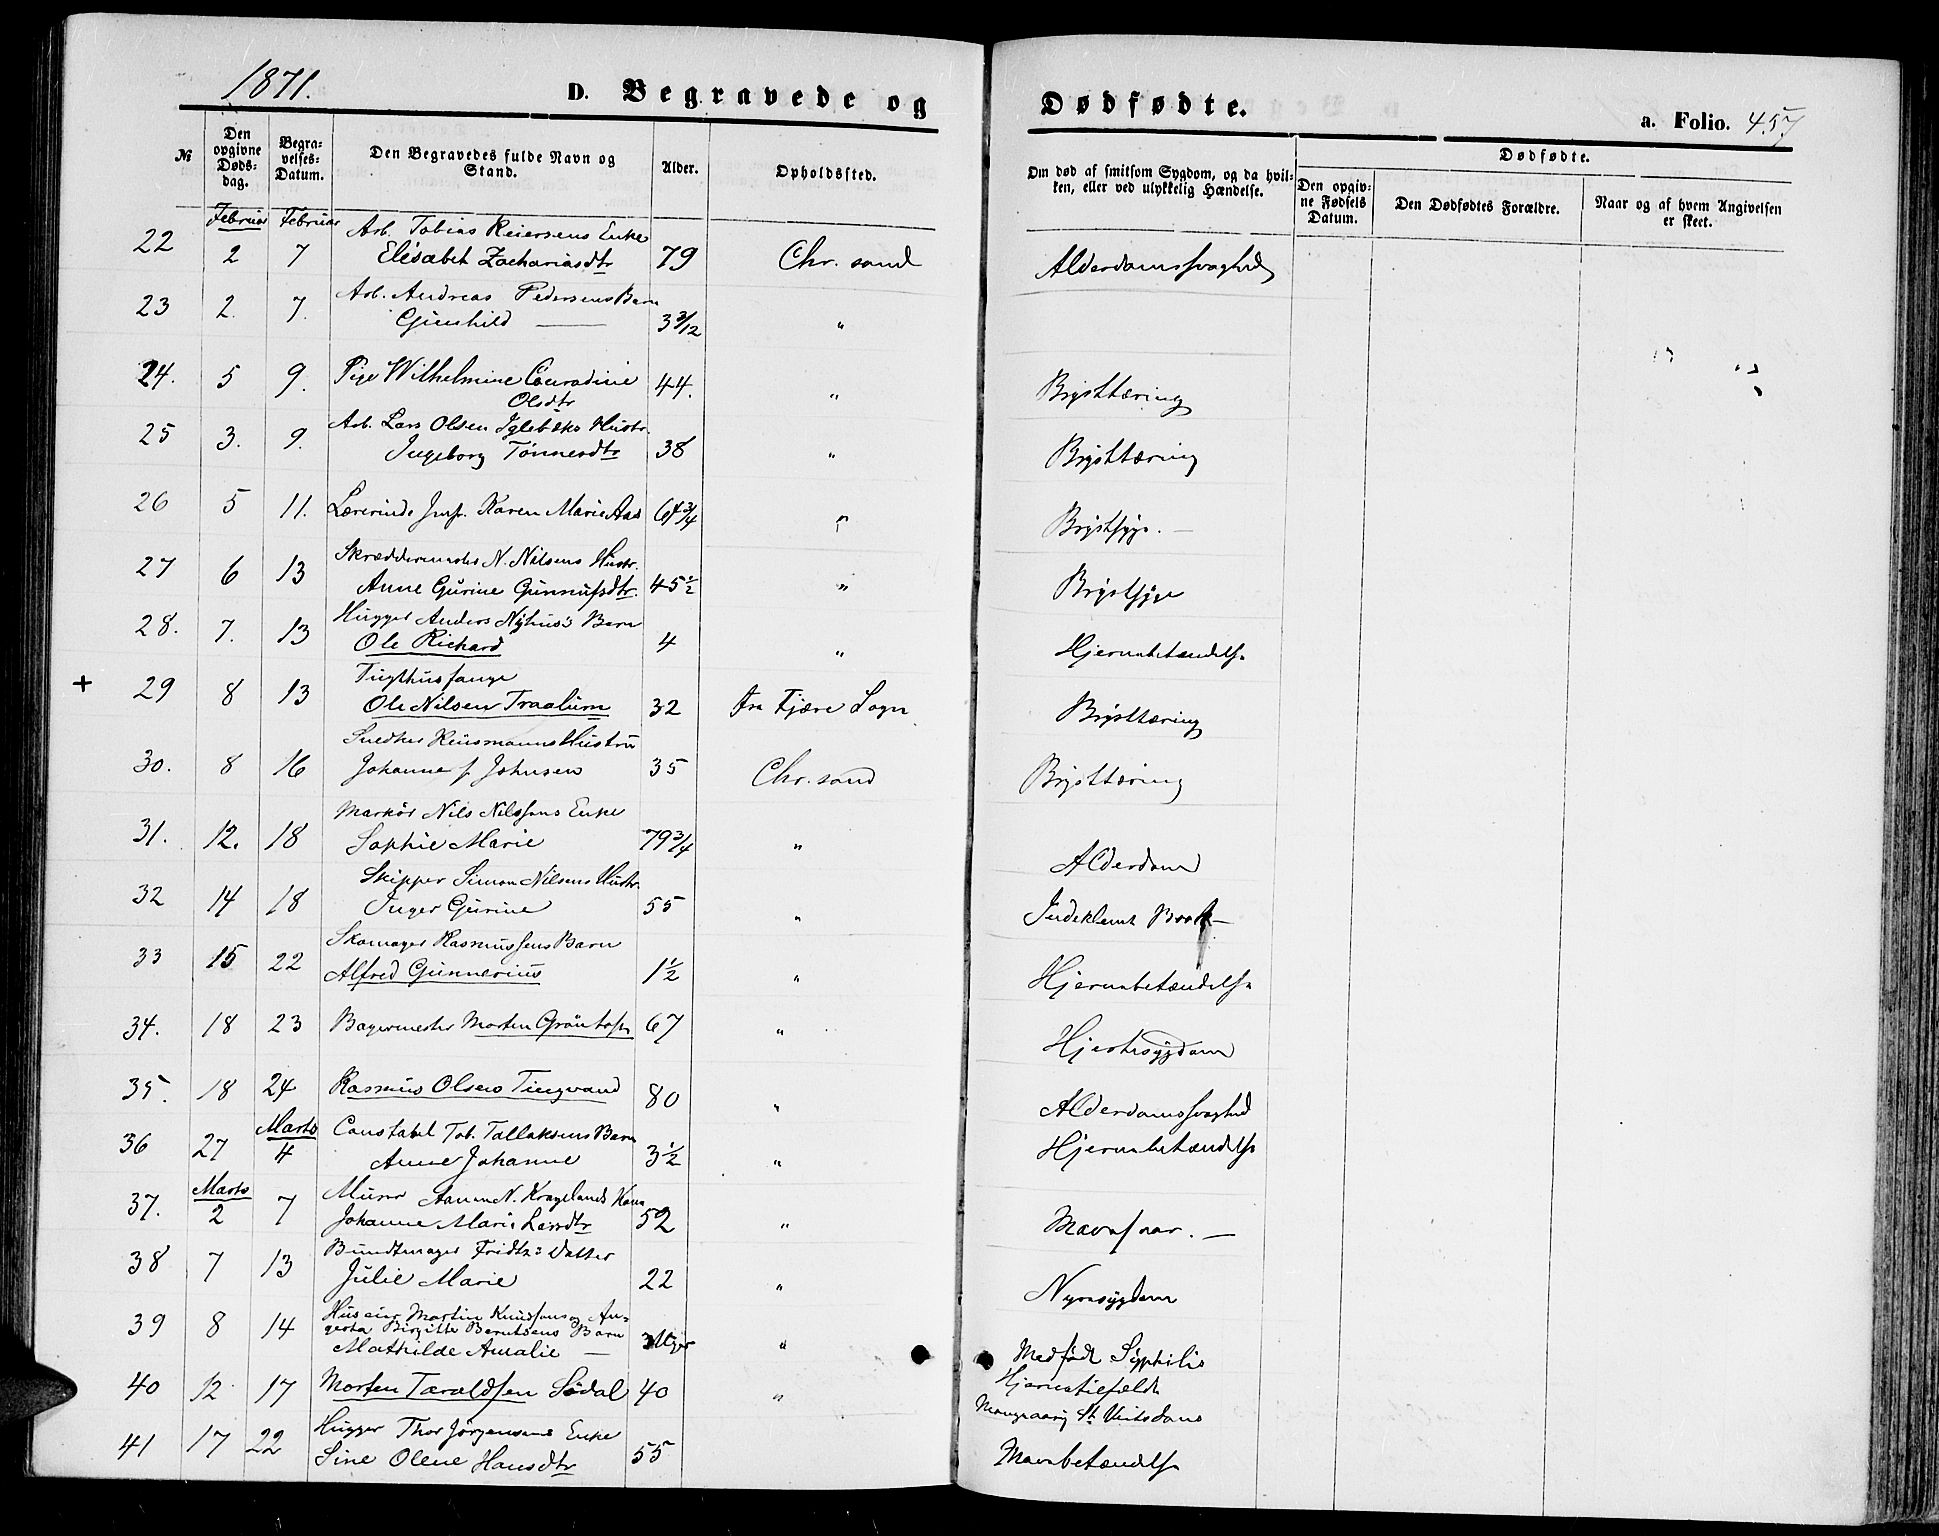 1871.
D. Begravede og Dødfødte.
a. Folio. 457
№
Den opgivne Dødsdag.
Begravelses-Datum.
Den Begravedes fulde Navn og Stand.
Alder.
Opholdssted.
Om død af smitsom Sygdom, og da hvilken, eller ved ulykkelig Hændelse.
Dødfødte.
Den opgivne Fødsels Datum.
Den Dødfødtes Forældre.
Naar og af hvem Angivelsen er skeet.
Februar Februar Arb. Tobias Reiersens Enke
22 2 7 Elisabet Zachariasdtr 79 Chr. sand Alderdomssvaghed
Arb. Andreas Pedersens Barn
23 2. 7. Gunhild — 3 3/12 "
24. 5 9. Pige Wilhelmine Conradine 44. " Brysttæring
Olsdtr
Arb. Lars Olsen Iglebæks Hustr.
25 3. 9. Ingeborg Tønnesdtr 38 " Brysttæring
26 5 11. Lærerinde Jmf. Karen Marie Aas 64 3/4 " Brystsyge. —
Skræddermester N. Nilsens Hustr.
27 6 13 Anne Gurine Gunnufsdtr. 45 1/2 " Brystsyge
Hugger Anders Nyhus's Barn
28. 7. 13 Ole Richard 4 " Hjernebetændelse
Tugthusfange
+ 29 8 13 Ole Nilsen Traalum 32 fra Fjære Sogn Brysttæring
Snedker Reusmanns Hustru
30. 8 16 Johanne f. Johnsen 35 Chr. sand Brysttæring
Markör Nils Nilssens Enke
31. 12. 18 Sophie Marie 79 3/4 " Alderdom
Skipper Simon Nilsens Hustr.
32 14 18 Inger Gurine 55 " Indeklemt Brok —
Skomager Rasmussens Barn
33 15 22 Alfred Gunnerius 1 1/2 " Hjernebetændelse
34. 18 23 Bagermester Morten 67 " Hjertesygdom
35. 18 24 Rasmus Olsens Tingvand 80 " Alderdomssvaghed
Marts Constabel Tob. Tallaksens Barn
36 27 4 Anne Johanne 3 1/2 " Hjernebetændelse
Marts Murer Aanen N. Kragelands Kone
37. 2 7 Johanne Marie Larsdtr 52 " Mavesaar. —
Bundtmager Fridtz's Datter
38 7 13 Julie Marie 22 " Nyresygdom
Huseier Martin Knudsens og An-
gerta Birgitte Berntsens Barn
39 8 14 Mathilde Amalie — 3 Uger " Medfødt Syphilis
40 12 17 Morten Taraldsen Södal 40 " Hjernetilfælde
St Veitsdans
Hugger Thor Jörgensens Enke
41 17 22 Sine Olene Hansdtr 55 Mavebetændelse